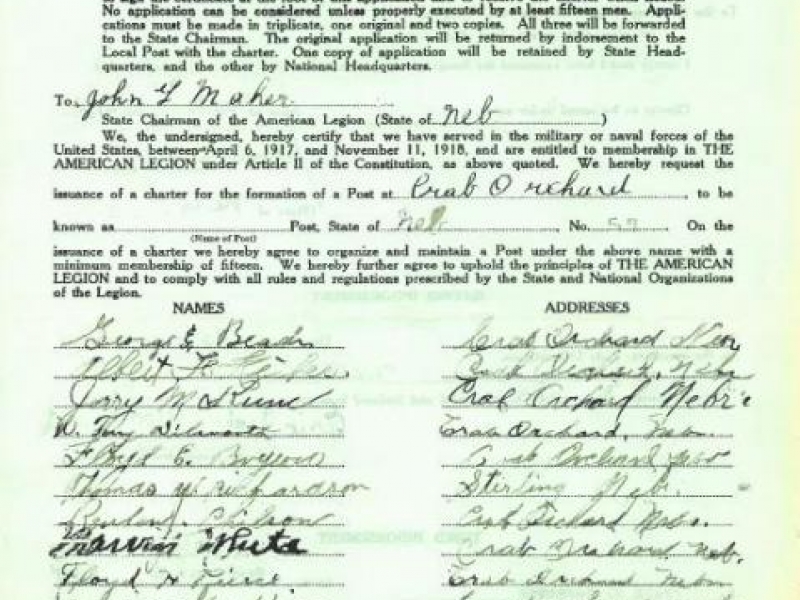 No application can be considered unless properly executed by at least fifteen men. Appli-
cations must be made in triplicate, one original and two copies. All three will be forwarded
to the State Chairman. The original application will be returned by indorsement to the
Local Post with the charter. One copy of application will be retained by State Head-
quarters, and the other by National Headquarters.
To, John G Maher
State Chairman of the American Legion (State of Neb )
We, the undersigned, hereby certify that we have served in the military or naval forces of the
United States, between April 6, 1917, and November 11, 1918, and are entitled to membership in THE
AMERICAN LEGION under Article II of the Constitution, as above quoted. We hereby request the
issuance of a charter for the formation of a Post at Crab Orchard, to be
known as Post, State of Neb, No. 57. On the
(Name of Post)
issuance of a charter we hereby agree to organize and maintain a Post under the above name with a
minimum membership of fifteen. We hereby further agree to uphold the principles of THE AMERICAN
LEGION and to comply with all rules and regulations prescribed by the State and National Organizations
of the Legion.
NAMES ADDRESSES
George E Crab Orchard
Albert H
Jerry Crab Orchard Nebr
Crab Orchard, Neb.
Floyd E. Crab Orchard
Thomas Richardson Sterling Neb.
Crab Orchard Nebr.
White Crab Orchard Neb.
Floyd H Pierce Crab Orchard Nebr